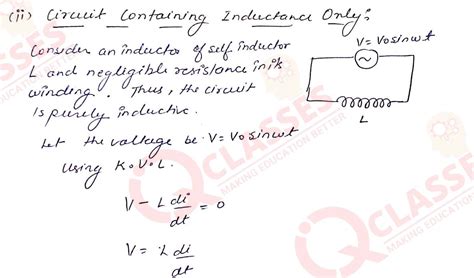 (ii) Circuit Containing Inductance Only:
Consider an inductor of self inductor
L and negligible resistance in its
winding. Thus, the circuit
is purely inductive.
V = V0 sin wt
L
Let the voltage be V = V0 sin wt
Using K.V.L.
V - L di/dt = 0
V = L di/dt
IQ CLASSES
MAKING EDUCATION BETTER